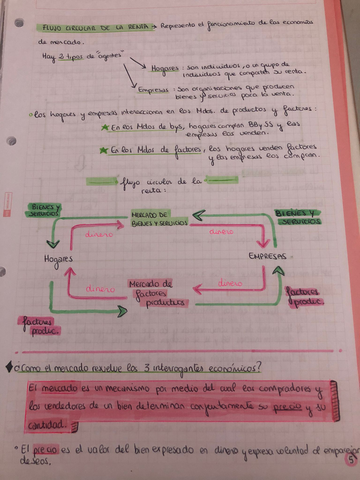 FLUJO CIRCULAR DE LA RENTA → Representa el funcionamiento de las economías
de mercado.
Hay 2 tipos de "agentes"
Hogares: son individuos, o un grupo de
individuos que comparten su renta.
Empresas: Son organizaciones que producen
bienes y servicios para la venta.
Los hogares y empresas interaccionan en los Mdos. de productos y factores:
★ En los Mdos de bys, hogares compran BBySS y las
empresas los venden.
★ En los Mdos de factores, los hogares venden factores
y las empresas los compran.
flujo circular de la
renta:
BIENES Y
SERVICIOS
MERCADO DE
BIENES Y SERVICIOS
BIENES Y
SERVICIOS
dinero
dinero
Hogares
EMPRESAS
dinero
Mercado de
factores
productivos
dinero
factores
produc.
factores
produc.
¿Como el mercado resuelve los 3 interrogantes económicos?
El mercado es un mecanismo por medio del cual los compradores y
los vendedores de un bien determinan conjuntamente su precio y su
cantidad.
El precio es el valor del bien expresado en dinero y expresa voluntad
deseos.
5